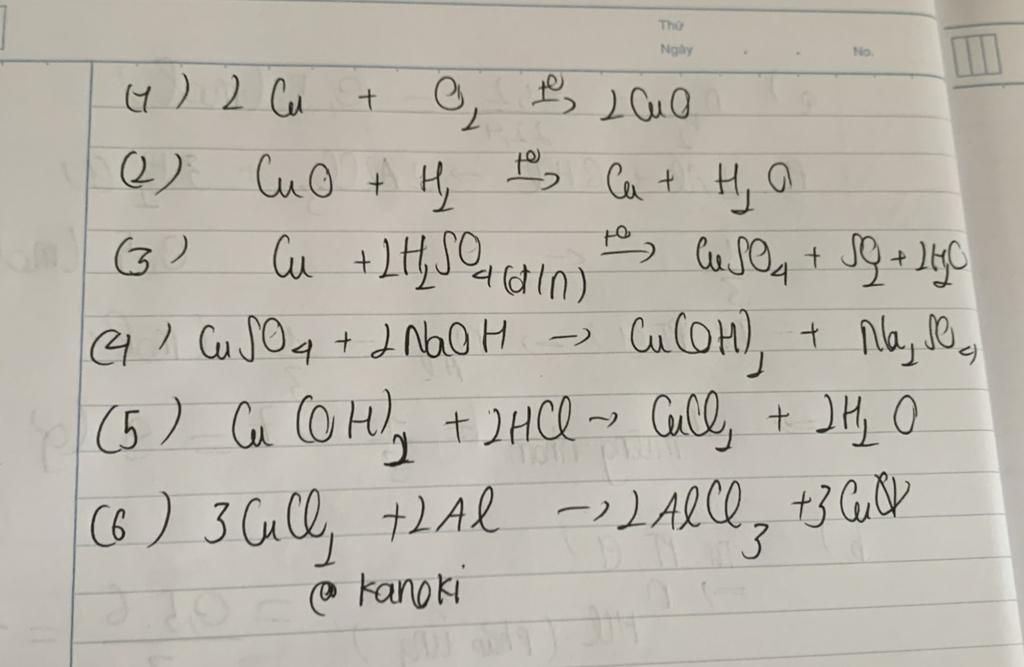 Thứ
Ngày . . No.
(1) 2 Cu + O₂ t°→ 2CuO
(2) CuO + H₂ t°→ Cu + H₂O
(3) Cu + 2H₂SO₄(đ/n) t°→ CuSO₄ + SO₂ + 2H₂O
(4) CuSO₄ + 2NaOH → Cu(OH)₂ + Na₂SO₄
(5) Cu(OH)₂ + 2HCl → CuCl₂ + 2H₂O
(6) 3CuCl₂ + 2Al → 2AlCl₃ + 3Cu↓
@ kanoki